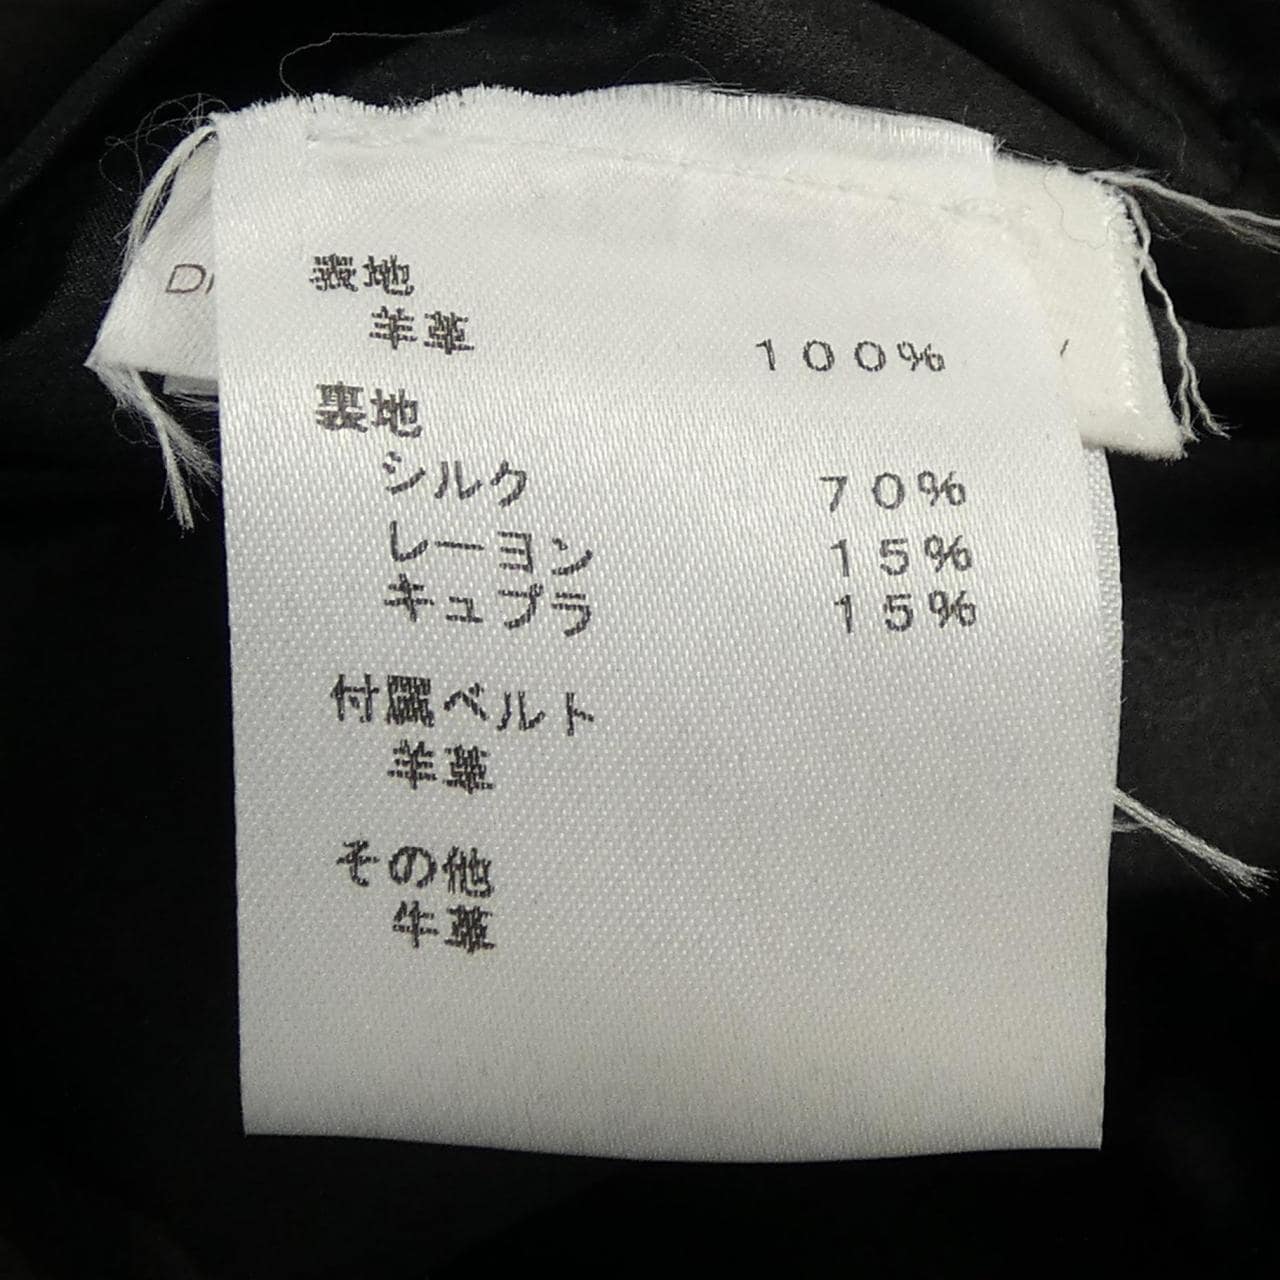 表地
羊革 100%
裏地
シルク 70%
レーヨン 15%
キュプラ 15%
付属ベルト
羊革
その他
牛革